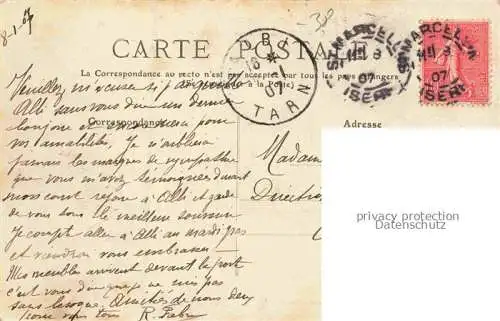 8-1-07
CARTE POSTALE
La Correspondance au recto n'est pas acceptée par tous les pays étrangers
Correspondance
Adresse
ALBI
TARN
ST-MARCELLIN
07
ISÈRE
ST-MARCELLIN
07
ISÈRE
privacy protection
Datenschutz
Madame
Direct
Veuillez m'excuser si j'ai quitté
Albi sans vous dire un dernier
bonjour et
vos amabilités. Je n'oublierai
jamais les marques de sympathie
que vous m'avez témoignées durant
mon court séjour à Albi et garde
de vous tous le meilleur souvenir
Je compte aller à Albi au mardi pas
et viendrai vous embrasser.
Mes meubles arrivent devant la porte
c'est vous dire que je ne suis
pas sans besogne. Amitiés de nous deux
pour vous tous R.